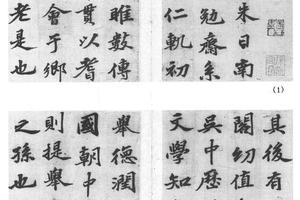 朱日南
勉齋系
仁軌初
數傳
貫以耆
會于鄉
老是也
(1)
其後有
閣幼值
吳中歷
文學知
舉德潤
國朝中
則提舉
之孫也